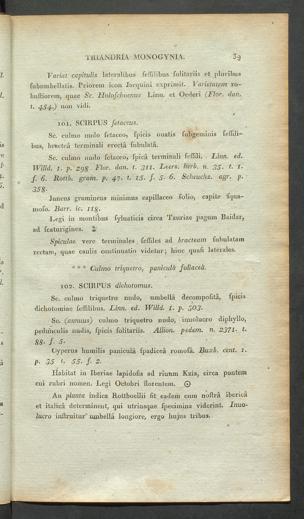 TRIANDRIA MONOGYNIA. 39
Variat capitulis lateralibus ſeſſilibus ſolitariis et pluribus
ſubumbellatis. Priorem icon Jacquini exprimit. Varietatem ro-
buſtiorem, quae Sc. Holoſchoenus Linn. et Oederi (Flor. dan.
t. 454.) non vidi.
101. SCIRPUS ſetaceus.
Sc. culmo nudo ſetaceo, ſpicis ouatis ſubgeminis ſeſſili-
bus, bracteâ terminali erectâ ſubulatâ.
Sc. culmo nudo ſetaceo, ſpicâ terminali ſeſſili. Linn. ed.
Willd. 1. p. 298. Flor. dan. t. 311. Leers. herb. n. 35. t. 1.
f. 6. Rottb. gram. p. 47. t. 15. f. 5. 6. Scheuchz. agr. p.
358.
Juncus gramineus minimus capillaceo folio, capite ſqua-
moſo. Barr. ic. 118.
Legi in montibus ſylvaticis circa Tauriae pagum Baidar,
ad ſcaturigines. ♃
Spiculae vere terminales ſeſſiles ad bracteam ſubulatam
rectam, quae caulis continuatio videtur; hinc quaſi laterales.
*** Culmo triquetro, paniculâ foliaceâ.
102. SCIRPUS dichotomus.
Sc. culmo triquetro nudo, umbellâ decompoſitâ, ſpicis
dichotomiae ſeſſilibus. Linn. ed. Willd. 1. p. 303.
Sc. (annuus) culmo triquetro nudo, involucro diphyllo,
pedunculis nudis, ſpicis ſolitariis. Allion. pedem. n. 2371. t.
88. f. 5.
Cyperus humilis paniculâ ſpadiceâ romoſâ. Buxb. cent. 1.
p. 35 t. 55. f. 2.
Habitat in Iberiae lapidoſis ad rivum Kzia, circa pontem
cui rubri nomen. Legi Octobri florentem. ☉
An planta indica Rottboellii ſit eadem cum noſtrâ ibericâ
et italicâ determinent, qui utriusque ſpecimina viderint. Invo-
lucro inſtruitur umbellâ longiore, ergo hujus tribus.